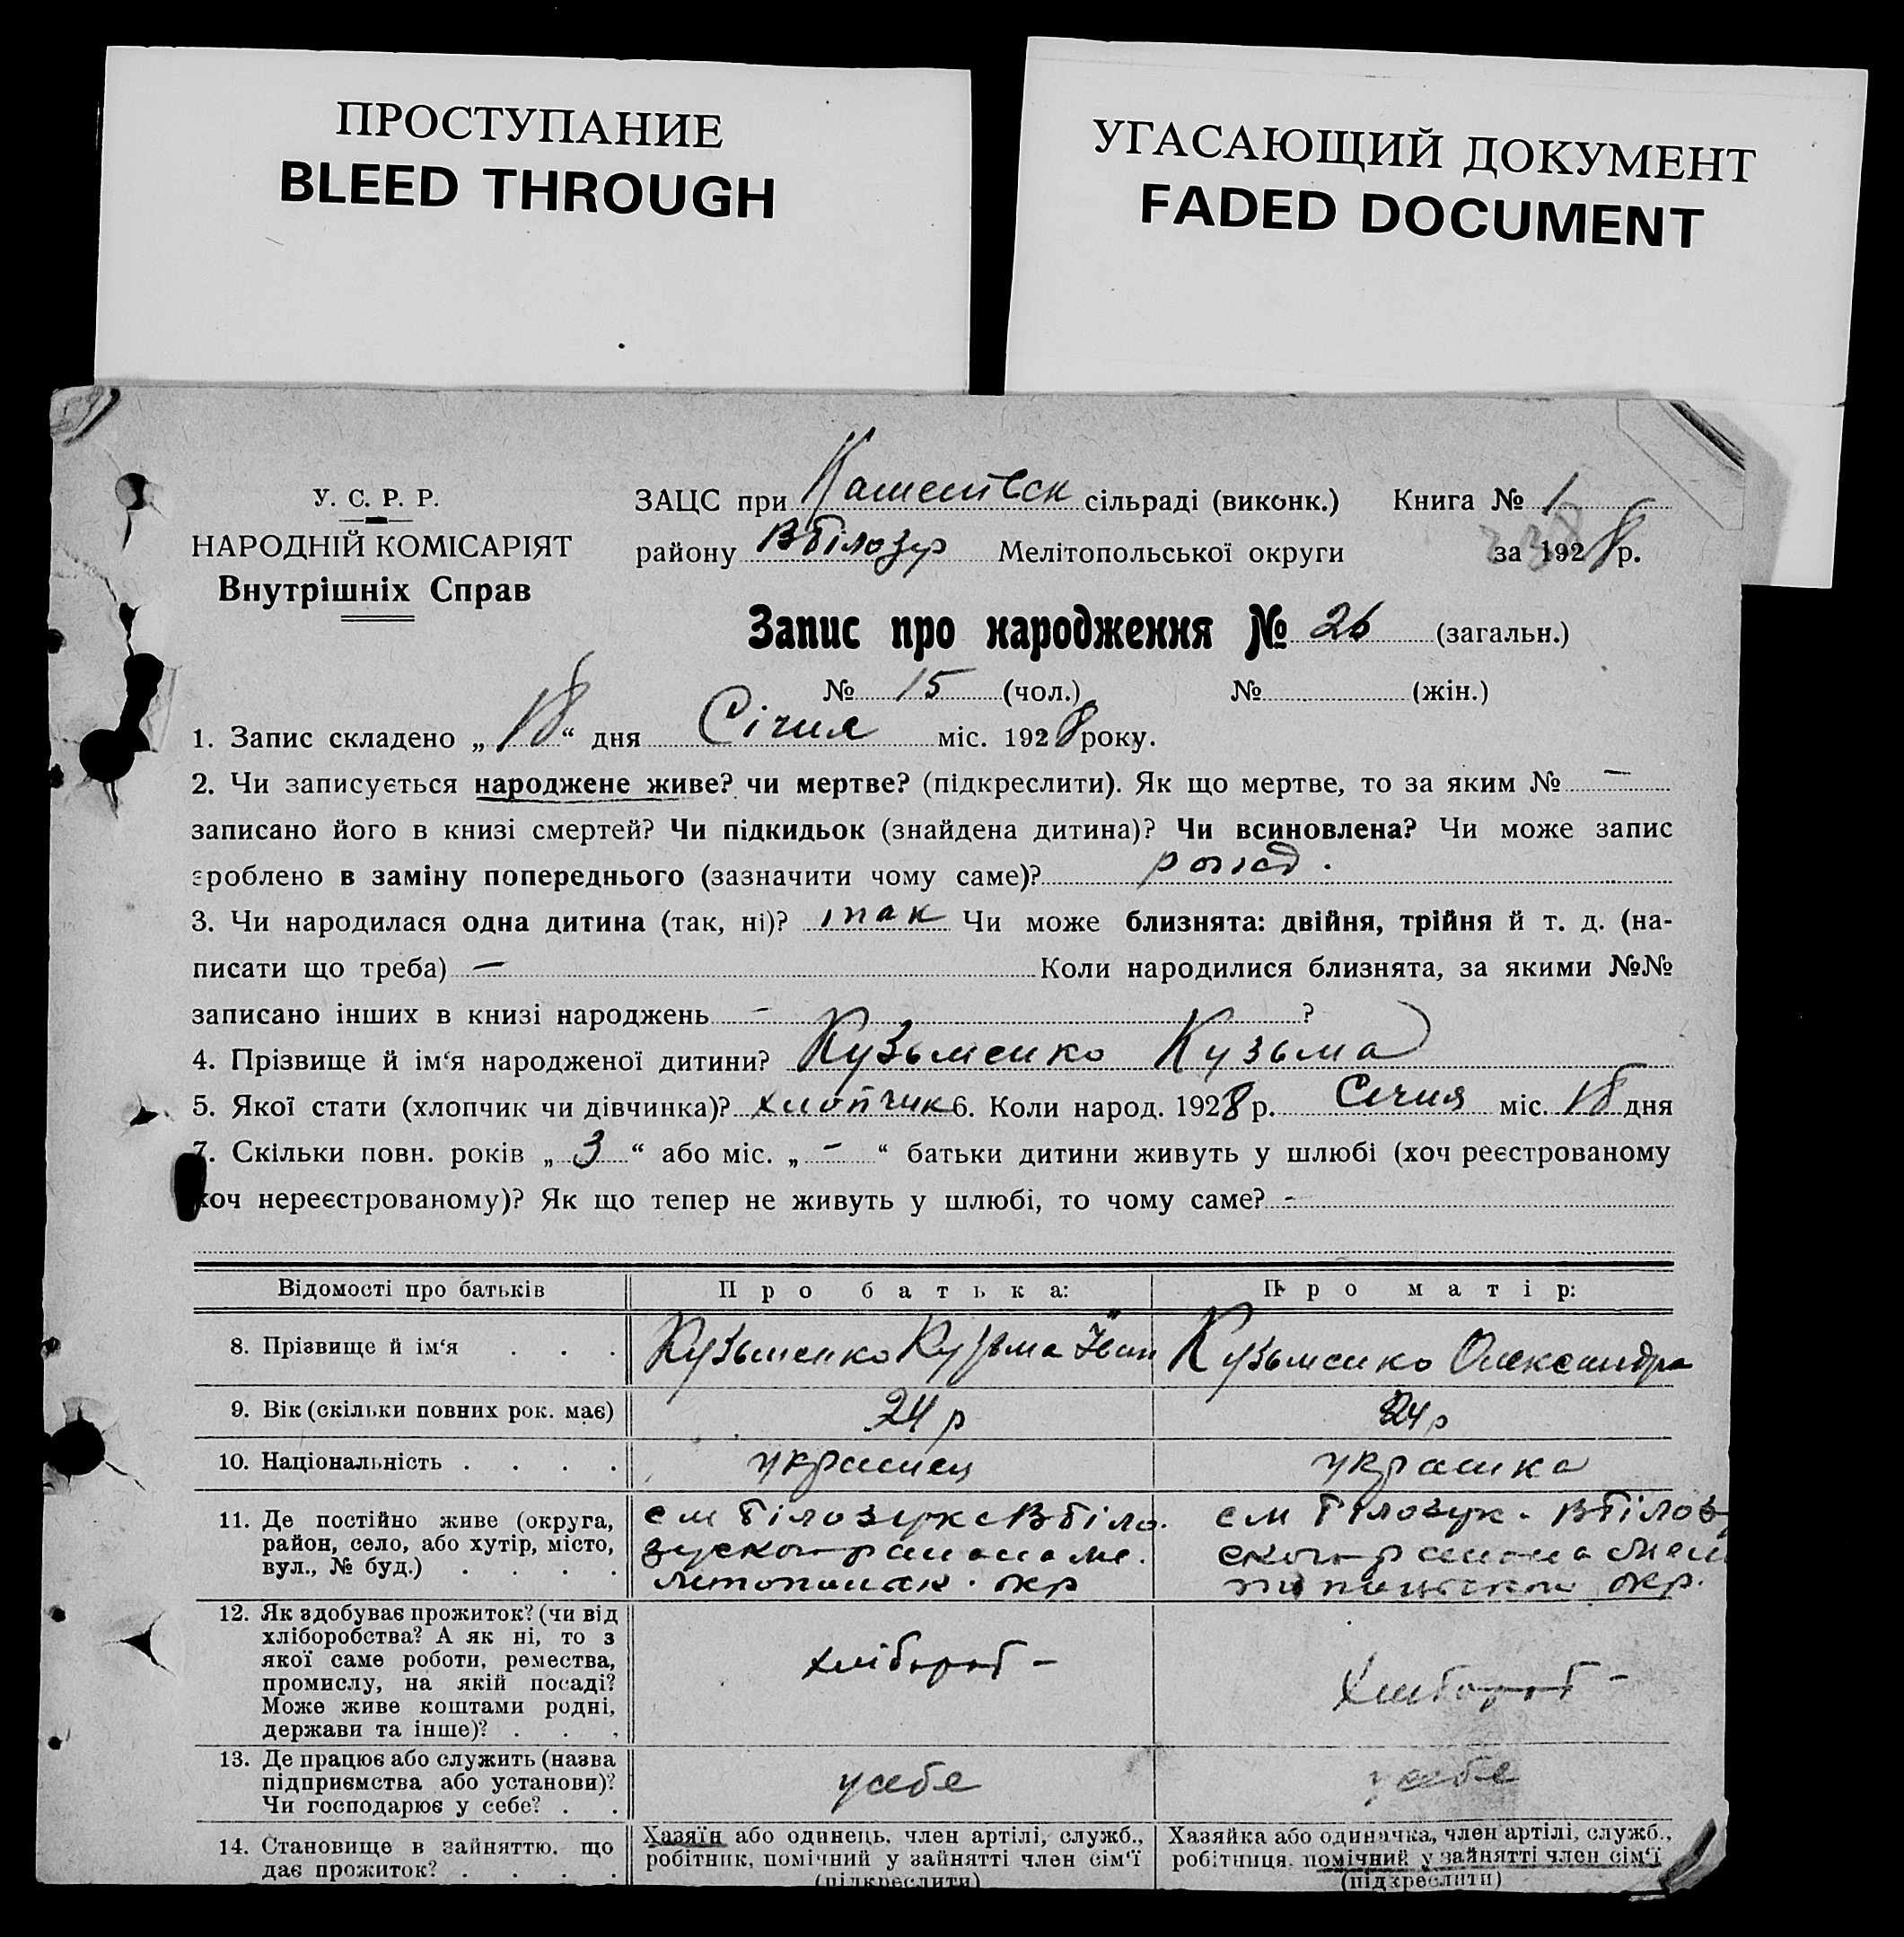 ПРОСТУПАНИЕ
BLEED THROUGH
УГАСАЮЩИЙ ДОКУМЕНТ
FADED DOCUMENT
У. С. Р. Р.
НАРОДНІЙ КОМІСАРІЯТ
Внутрішніх Справ
ЗАЦС при сільраді (виконк.) Книга № 1
району ВБілозур Мелітопольської округи за 1928 р.
Запис про народження № 26 (загальн.)
№ 15 (чол.) № (жін.)
1. Запис складено „18“ дня Січня міс. 1928 року.
2. Чи записується народжене живе? чи мертве? (підкреслити). Як що мертве, то за яким № —
записано його в книзі смертей? Чи підкидьок (знайдена дитина)? Чи всиновлена? Чи може запис
зроблено в заміну попереднього (зазначити чому саме)?
3. Чи народилася одна дитина (так, ні)? так Чи може близнята: двійня, трійня й т. д. (на-
писати що треба) — Коли народилися близнята, за якими №№
записано інших в книзі народжень - ?
4. Прізвище й ім‘я народженої дитини? Кузьменко Кузьма
5. Якої стати (хлопчик чи дівчинка)? хлопчик 6. Коли народ. 1928 р. Січня міс. 18 дня
7. Скільки повн. років „3“ або міс. „-“ батьки дитини живуть у шлюбі (хоч реєстрованому
хоч нереєстрованому)? Як що тепер не живуть у шлюбі, то чому саме? -
Відомості про батьків Про батька: Про матір:
8. Прізвище й ім‘я . . . Кузьменко Кузьма Іван Кузьменко Олександра
9. Вік (скільки повних рок. має) 24 р 24 р
10. Національність . . . . украинец украинка
11. Де постійно живе (округа,
район, село, або хутір, місто,
вул., № буд.) . . . .
см Білозурка ВБіло.
зуского района ме.
литопольск. окр
см Білозурк. ВБілозу
ского района Мели
окр.
12. Як здобуває прожиток? (чи від
хліборобства? А як ні, то з
якої саме роботи, ремества,
промислу, на якій посаді?
Може живе коштами родні,
держави та інше)? . . .
хлібороб -
хлібороб -
13. Де працює або служить (назва
підприємства або установи)?
Чи господарює у себе? . .
у себе
у себе
14. Становище в зайняттю, що
дає прожиток? . . . .
Хазяїн або одинець, член артілі, служб.,
робітник, помічний у зайнятті член сім‘ї
(підкреслити)
Хазяйка або одиначка, член артілі, служб.,
робітниця, помічний у зайнятті член сім‘ї
(підкреслити)